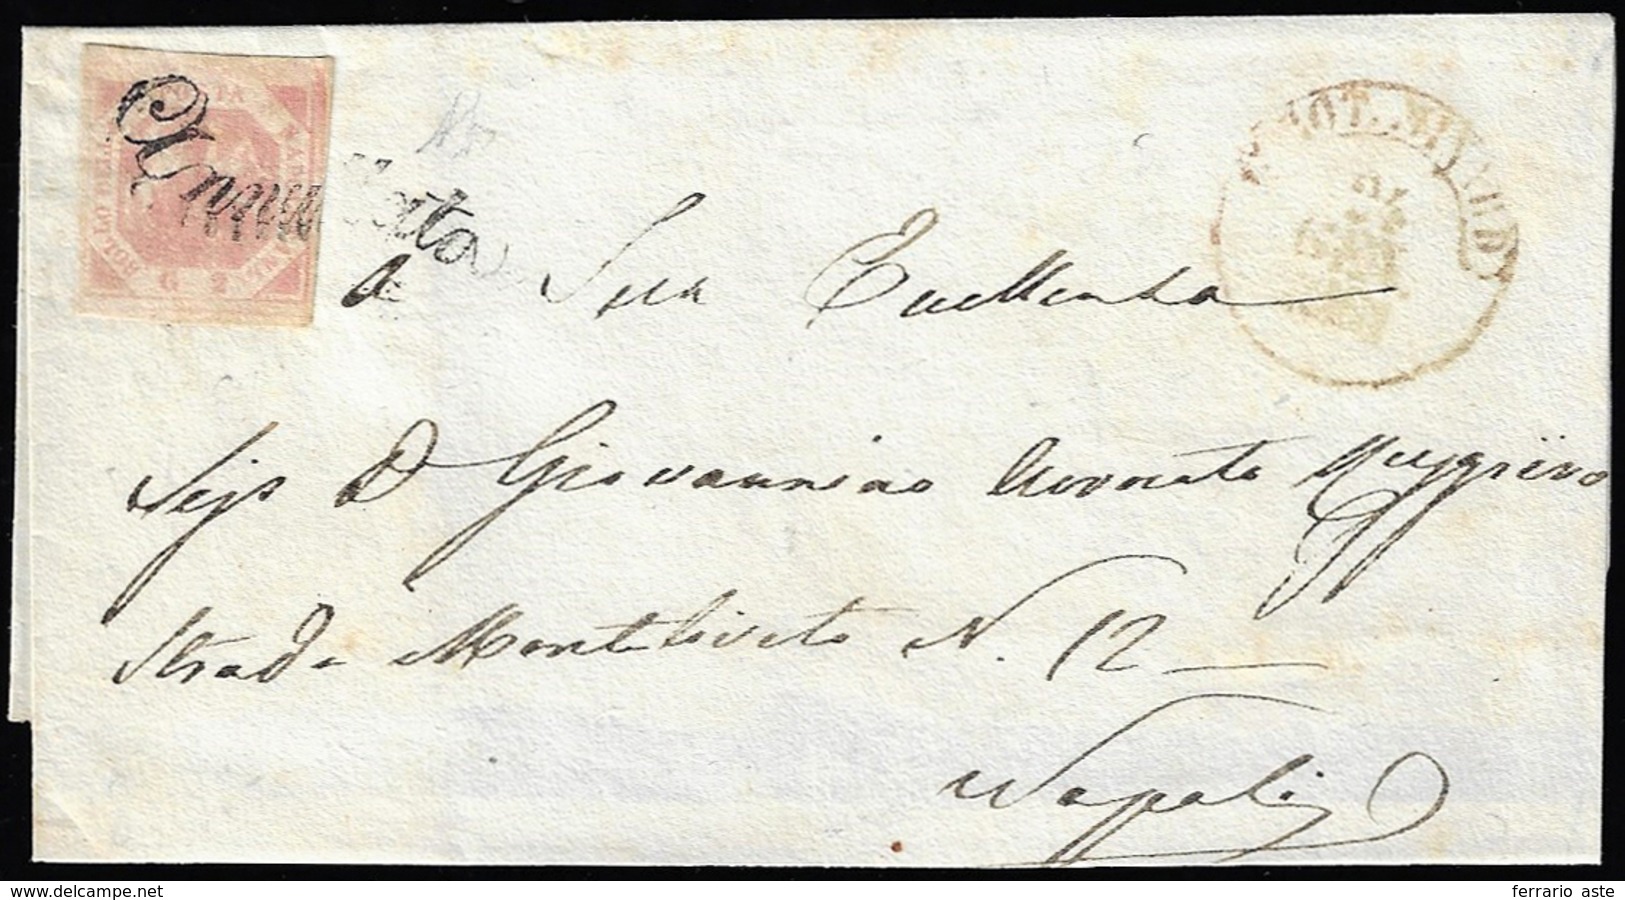 BOLLO DELLA
G 2
Annullato
A Sua Eccellenza
Sig D Giovannino Avvocato Ruggiero
Strada Monteliveto N. 12
Napoli
delcampe.net
ferrario aste